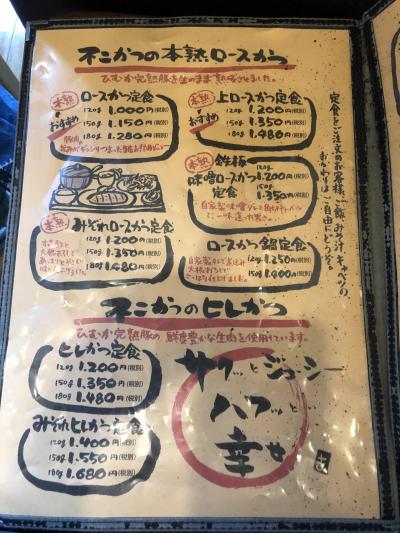 不二かつの本熟ロースかつ
ひむか完熟豚を生のまま熟成させました。
本熟
ロースかつ定食
120g 1,000円(税別)
おすすめ
150g 1,150円(税別)
180g 1,280円(税別)
本熟
上ロースかつ定食
120g 1,200円(税別)
おすすめ
150g 1,350円(税別)
180g 1,480円(税別)
本熟
鉄板
味噌ロースかつ
定食
120g
1,200円(税別)
150g
1,350円(税別)
本熟
みぞれロースかつ定食
120g 1,200円(税別)
150g 1,350円(税別)
180g 1,480円(税別)
ロースかつ鍋定食
120g 1,250円(税別)
150g 1,400円(税別)
定食をご注文のお客様、ご飯、み汁、キャベツの
おかわりはご自由にどうぞ。
不二かつのヒレかつ
ひむか完熟豚の鮮度豊かな生肉を使用しています。
ヒレかつ定食
120g 1,200円(税別)
150g 1,350円(税別)
180g 1,480円(税別)
みぞれヒレかつ定食
120g 1,400円(税別)
150g 1,550円(税別)
180g 1,680円(税別)
サクッとジューシー
ハフッと
幸せ